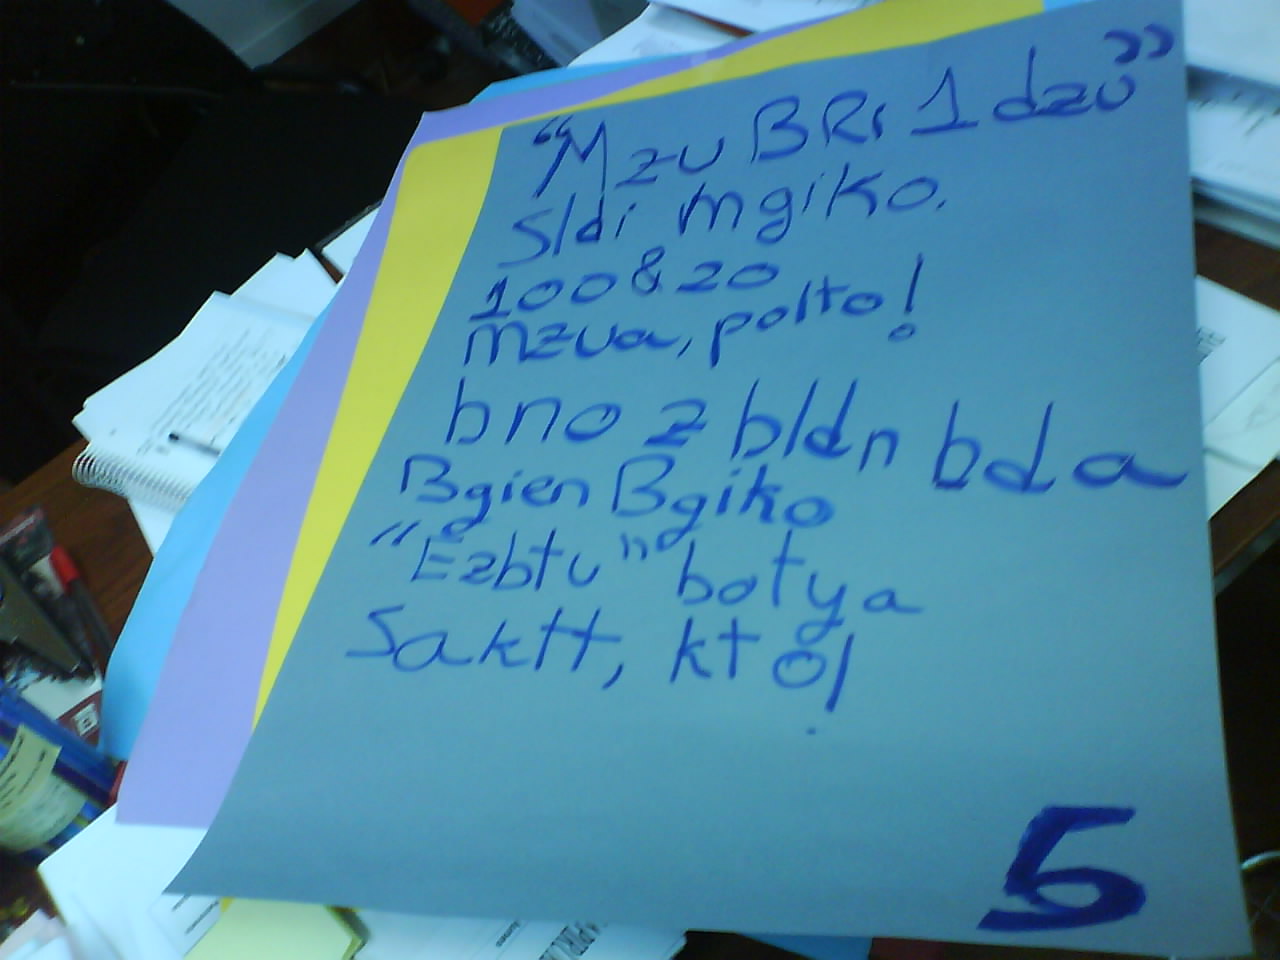 “Mzu BRi 1 dzu”
Sldi mgiko.
100 & 20
mzua, polto!
bno z bldn bda
Bgien Bgiko
“Ezbtu” botya
Saktt, kt o!
5